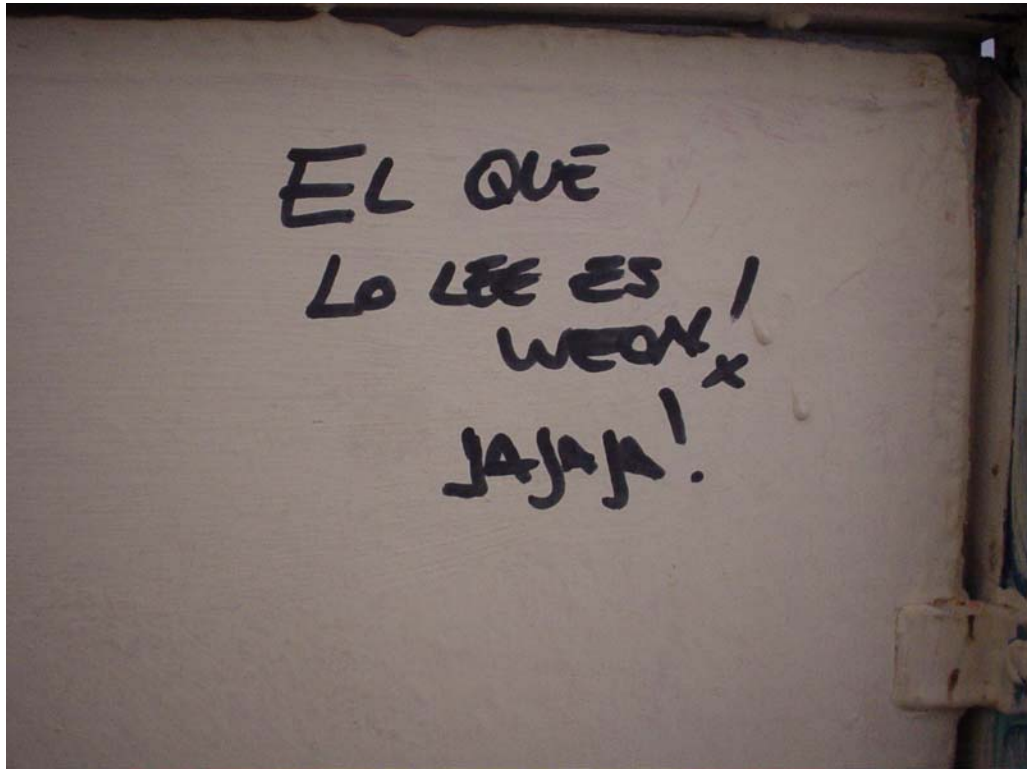 EL QUE
LO LEE ES
WEON!
JAJAJA!